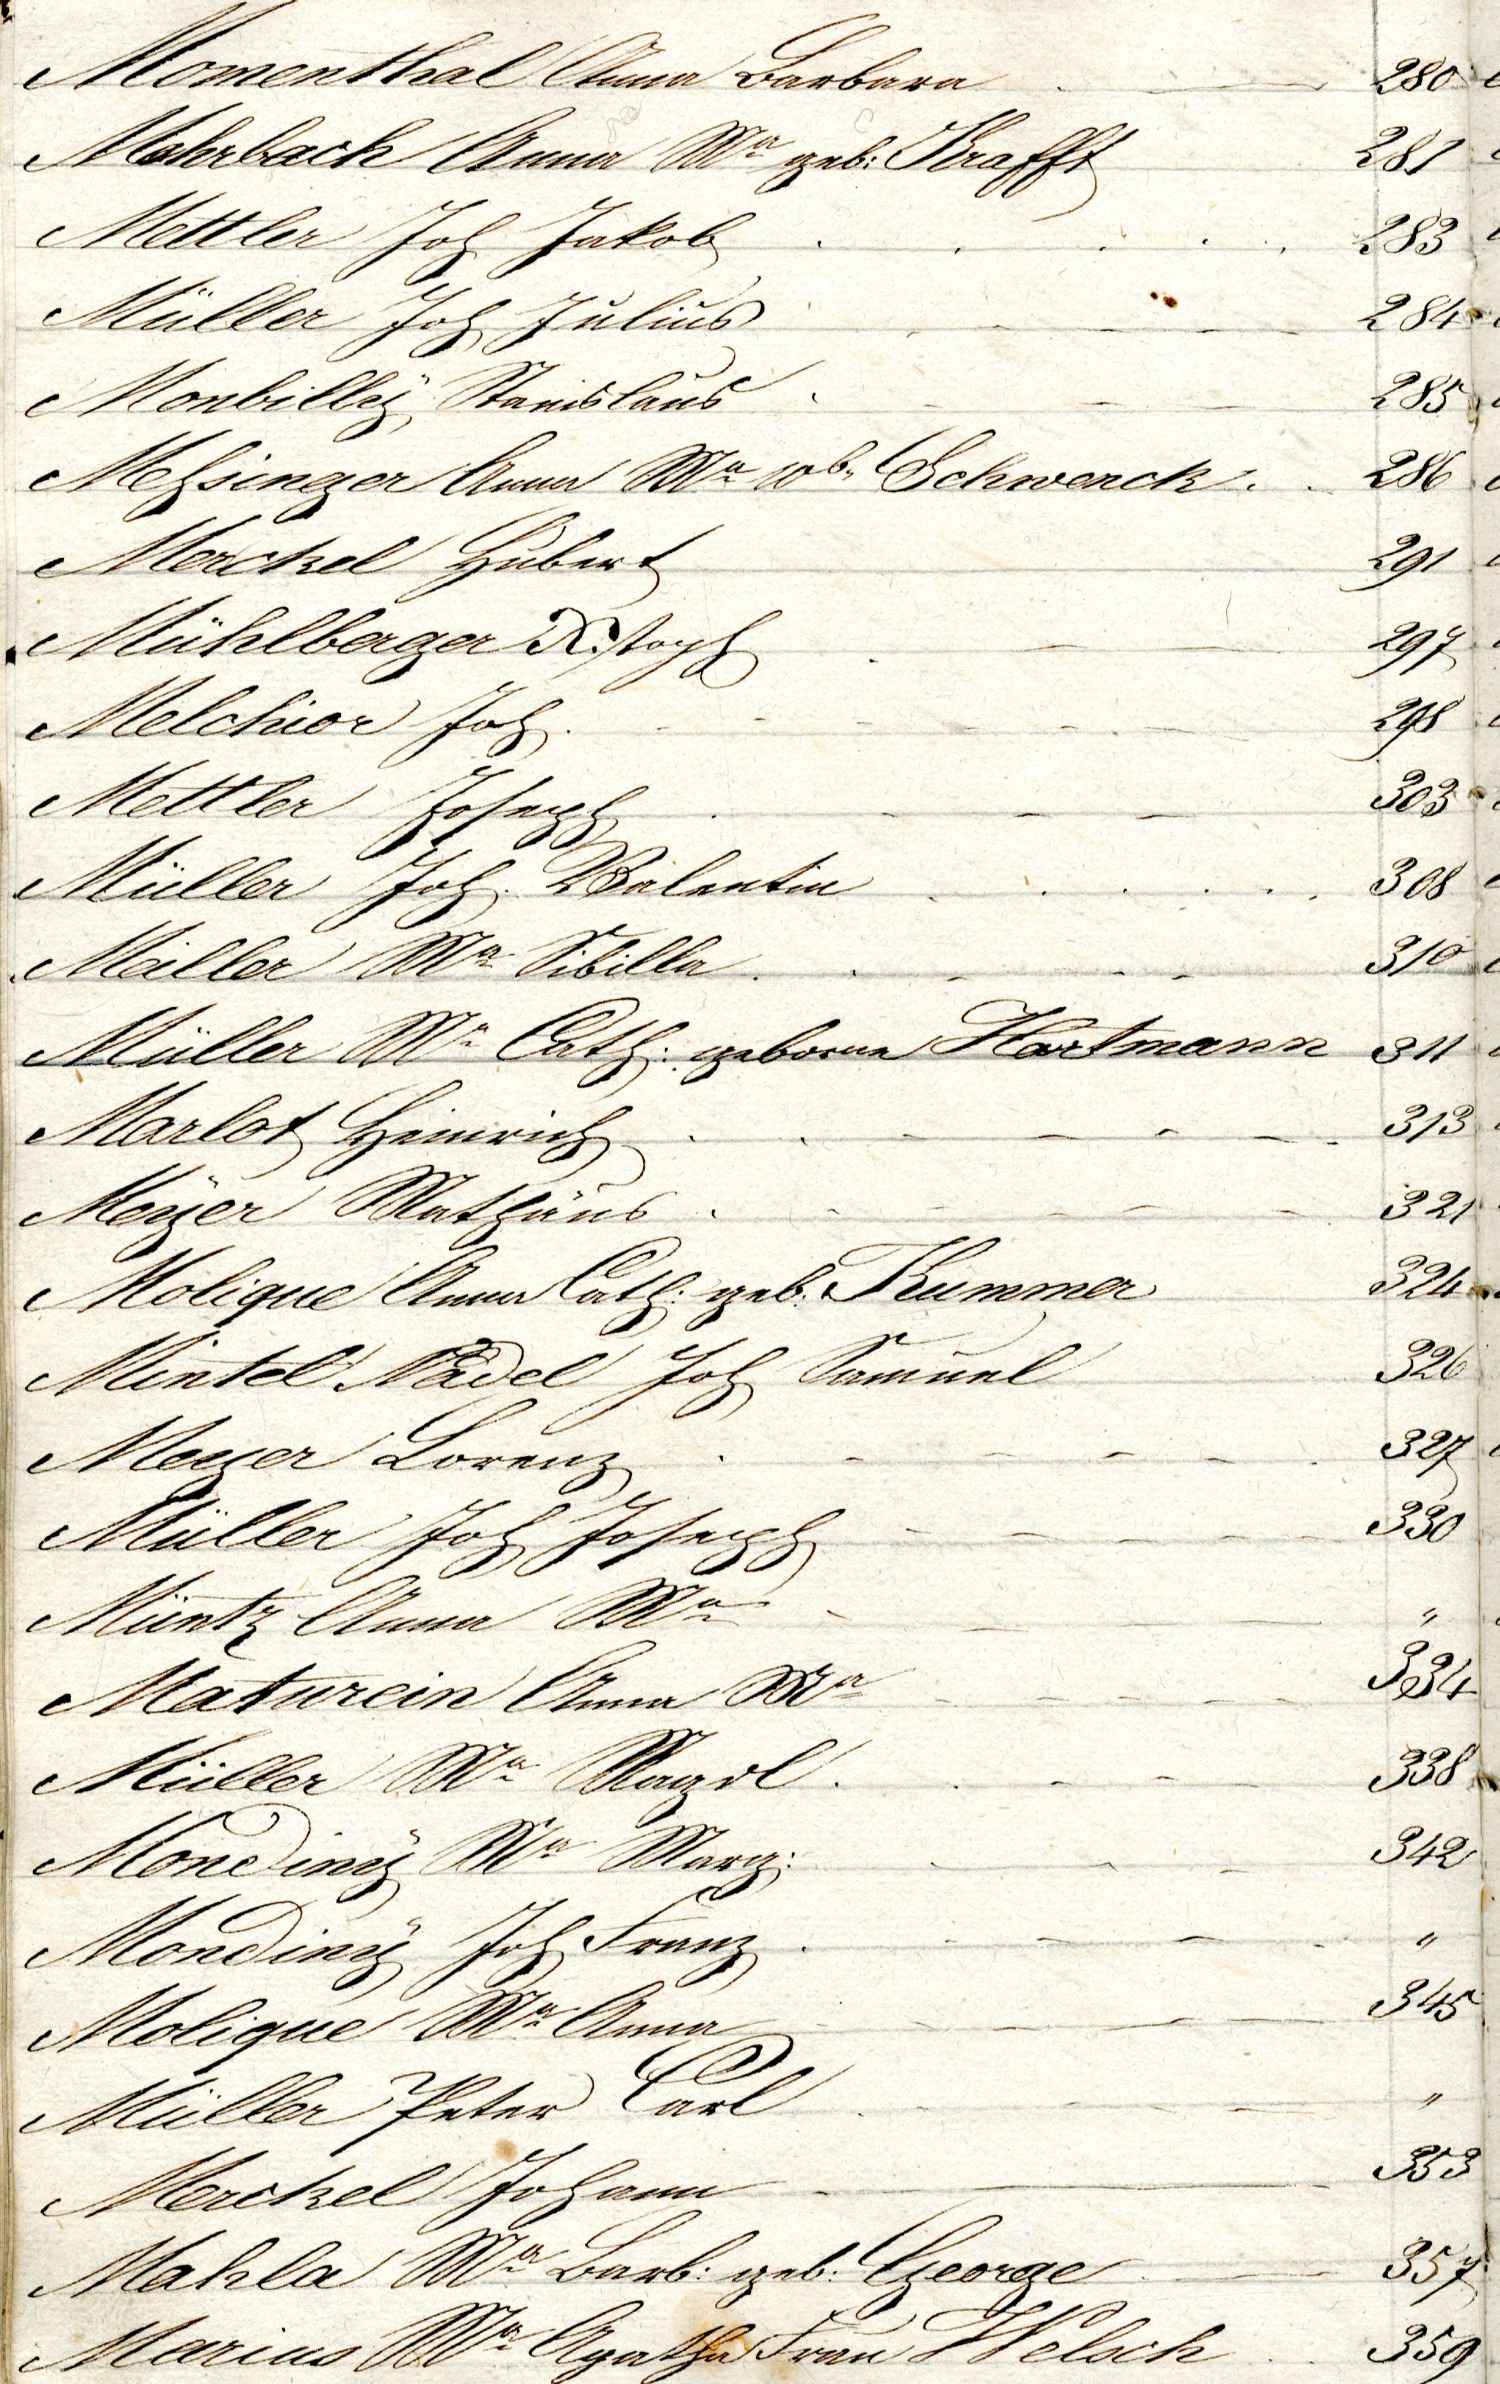 Momenthal Anna Barbara 280
Mohrbach Anna Ma geb: Krafft 281
Mettler Joh Jakob 283
Müller Joh Julius 284
Monbillÿ Stanislaus 285
Meßinger Anna Ma Schwenck. 286
Merckel Hubert 291
Mühlberger Xstoph 297
Melchior Joh. 298
Mettler Joseph 303
Müller Joh. Valentin 308
Müller Ma Sibilla 310
Müller Ma Cath: geborne Hartmann 311
Marlot Heinrich 313
Meÿer Mathäus 321
Molique Anna Cath: geb: Kummer 324
Mintel Nädel Joh Samuel 326
Meyer Lorenz 327
Müller Joh Joseph 330
Müntz Anna Ma "
Maturein Anna Ma 334
Müller Ma Magdl 338
Mondinÿ Ma Marg: 342
Mondinÿ Joh Franz "
Molique Ma Anna 345
Müller Peter Carl "
Merckel Johann 353
Mahla Ma Barb: geb: George 357
Marius Ma Agatha Frau Welsch 359